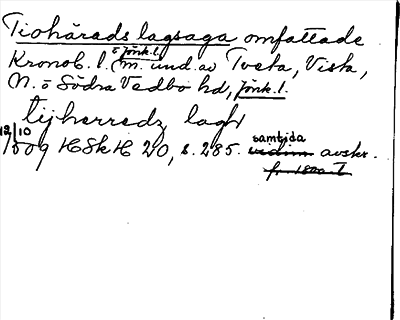 Tiohärads lagsaga omfattade
Kronob. l. o Jönk. l. m. und. av Tveta, Vista,
N. o Södra Vedbo hd, Jönk. l.
tijherredz lagh
12/10
1509 HSkH 20, s. 285. samtida vidim avskr.
fr. 1500-t